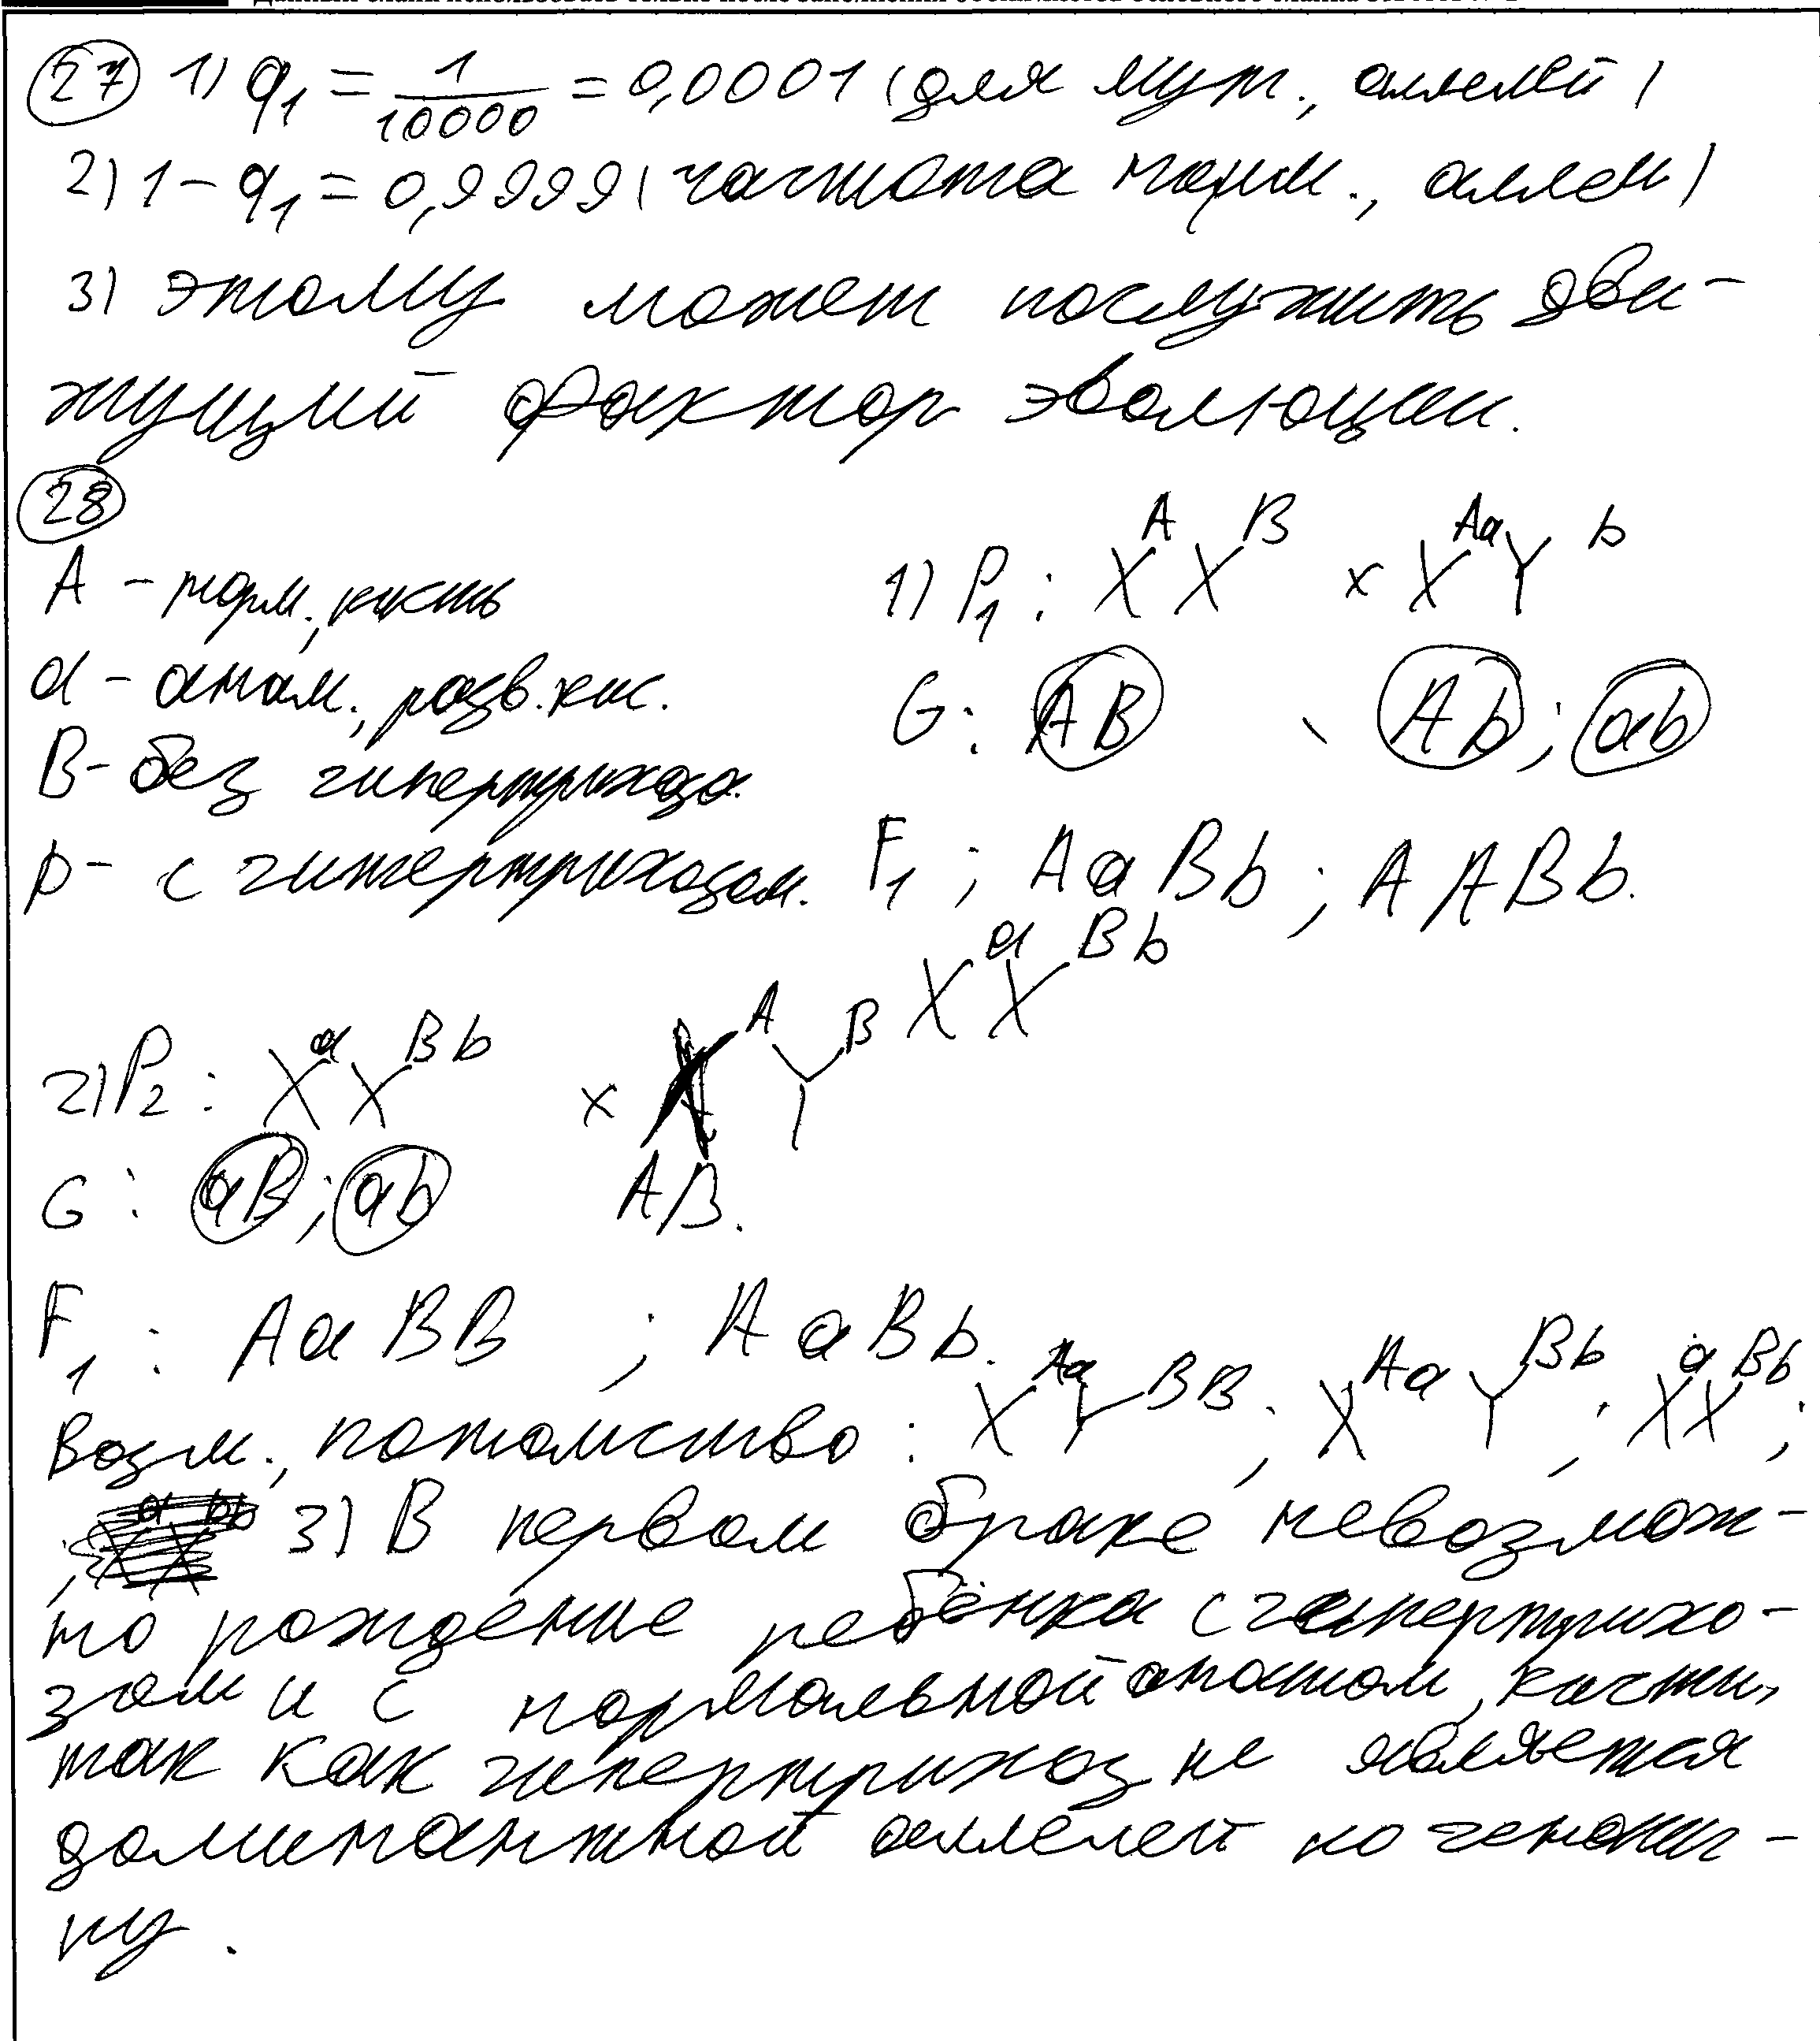 27 1) q₁ = 1/10000 = 0,0001 (для мут., аллелей)
2) 1 - q₁ = 0,9999 (частота норм., аллел)
3) этому может послужить дви-
жущий фактор эволюции.
28
A - норм., кисть
a - аном., разв. кис.
B - без гипертрихоза.
b - с гипертрихозом.
1) P₁: X X^A ^B x X^Aa Y ^b
G: AB Ab; ab
F₁; AaBb; AABb.
X X^a ^Bb
2) P₂: X X^a ^Bb x X^A Y^B
G: aB; ab AB.
F₁: AaBB; AaBb.
Возм., потомство: X^Aa Y^BB; X^Aa Y^Bb; X^a X^Bb;
3) В первом браке невозмож-
но рождение ребёнка с гипертрихо-
зом и с нормальной кисти,
так как гипертрихоз не является
доминантной аллелей по геноти-
пу.